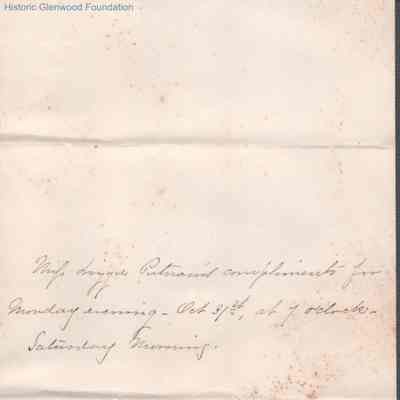 Historic Glenwood Foundation
Miss Lizzie compliments for
Monday evening - Oct 31st, at 7 o'clock -
Saturday Morning.